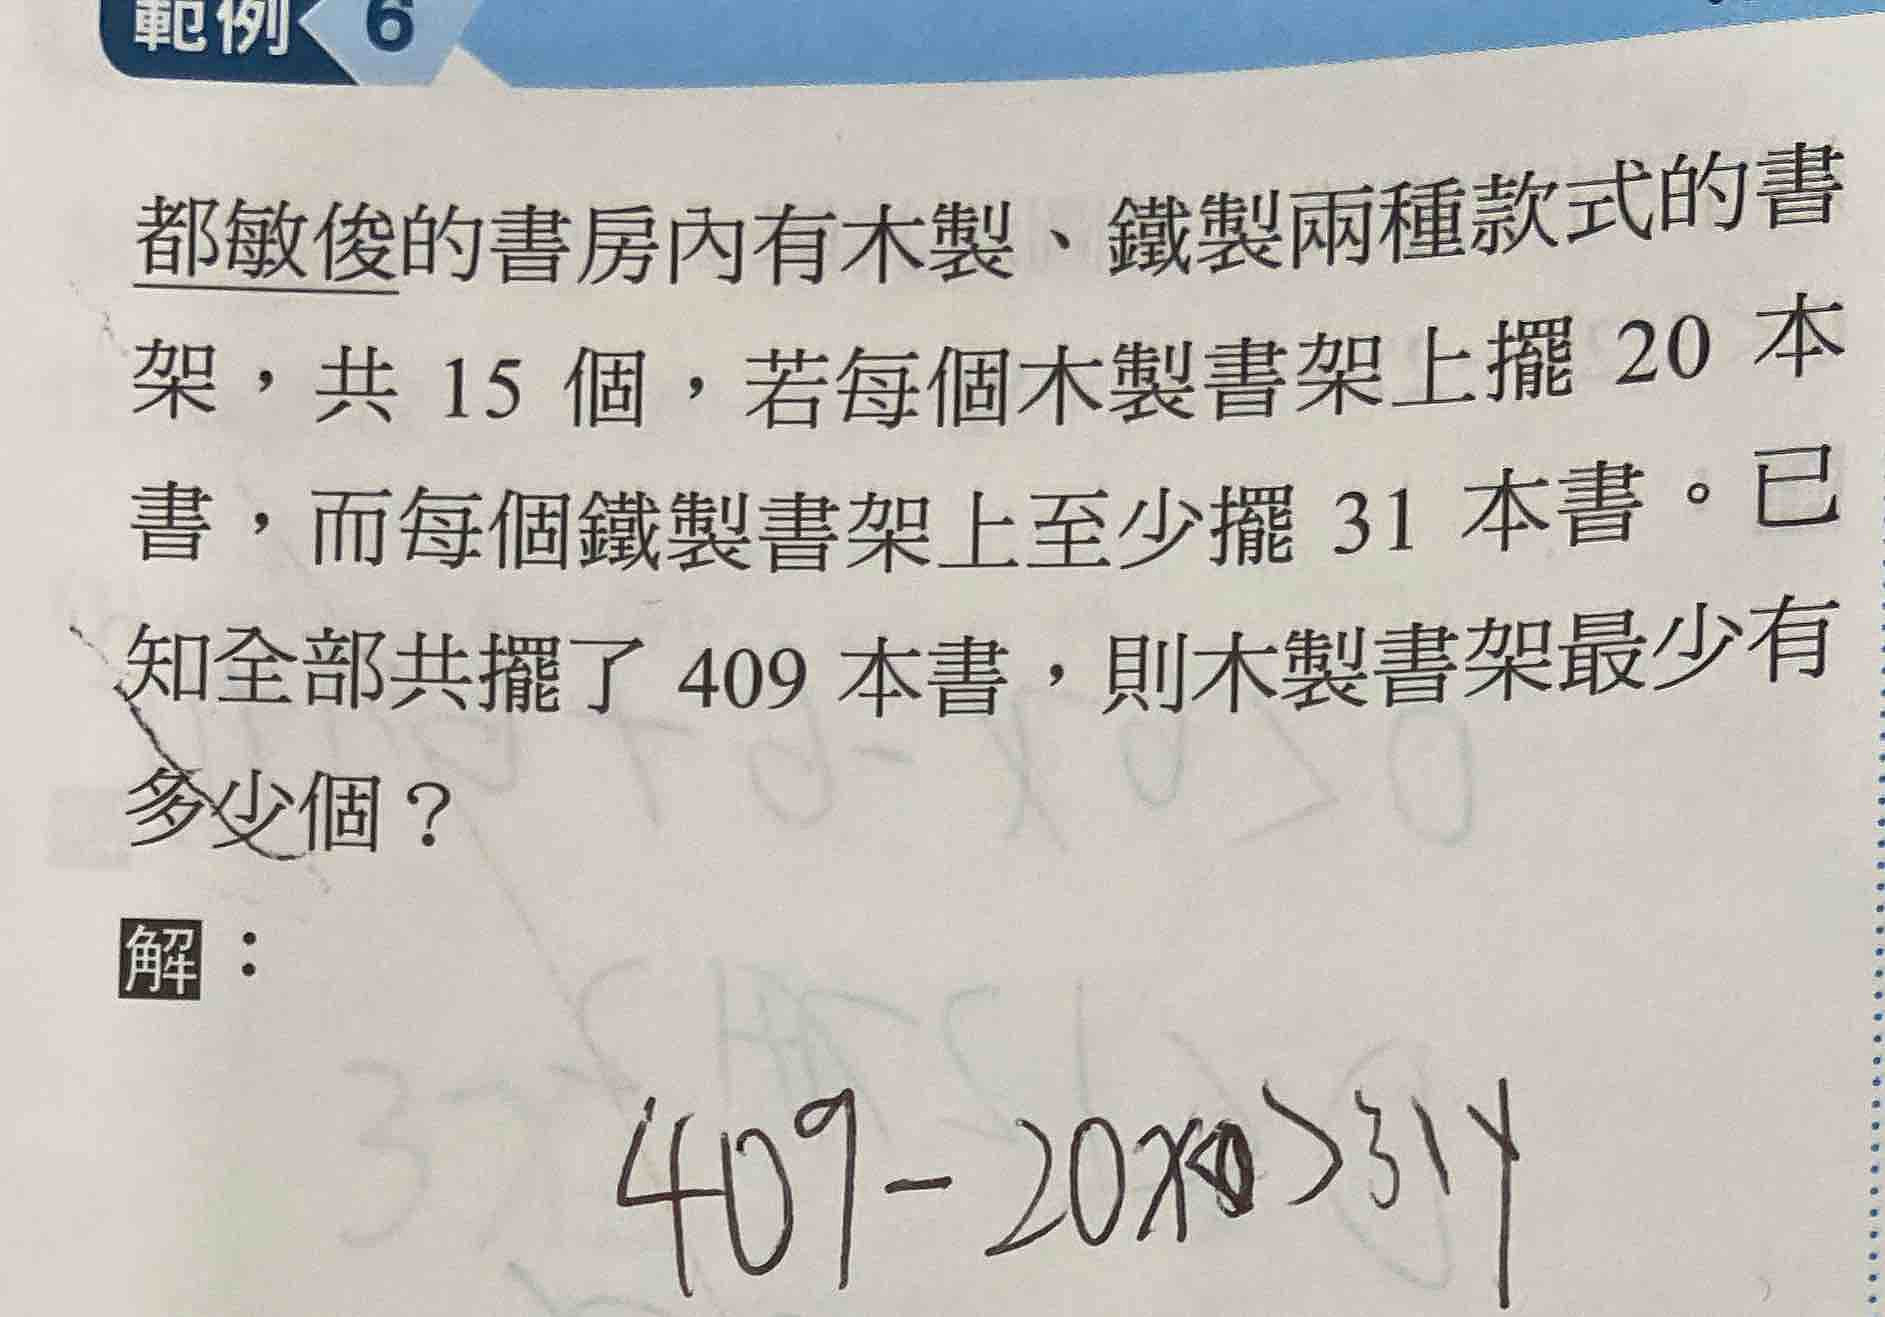 範例 6
都敏俊的書房內有木製、鐵製兩種款式的書
架，共 15 個，若每個木製書架上擺 20 本
書，而每個鐵製書架上至少擺 31 本書。已
知全部共擺了 409 本書，則木製書架最少有
多少個？
解：
409-20x>31y